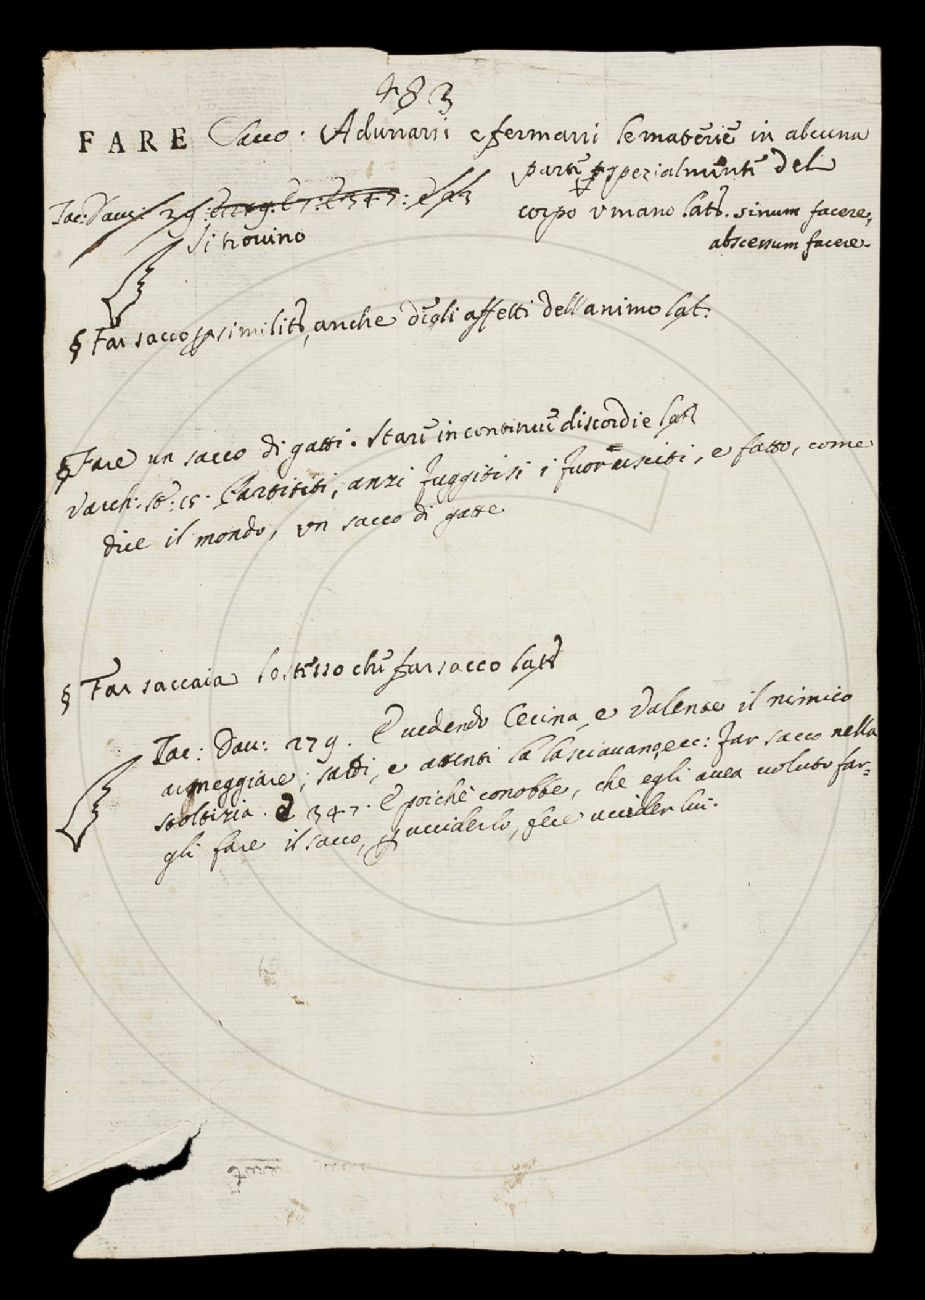 483
FARE Sacco. Adunarsi e fermarsi le materie in alcuna
parte spezialmente del
Tac: Dav: 29: E 279. E 7: E 347: E
corpo vmano lat. sinum facere,
si trovino
abscessum facere
§ Far sacco per similit. anche degli affetti dell'animo lat.
§ Fare un sacco di gatti. Stare in continue discordie lat.
Varch: st: 15. Partititi, anzi fuggitisi i fuorusciti, e fatto, come
dice il mondo, vn sacco di gatte
§ Far saccaia lo stesso che far sacco lat.
Tac: Dav: 279. E vedendo Cecina, e Valente il nimico
armeggiare, satti, e attenti la lasciavano, ecc: far sacco nella
stoltizia. E 347. E poichè conobbe, che egli avea voluto far=
gli fare il sacco, e ucciderlo, fece uccider lui.